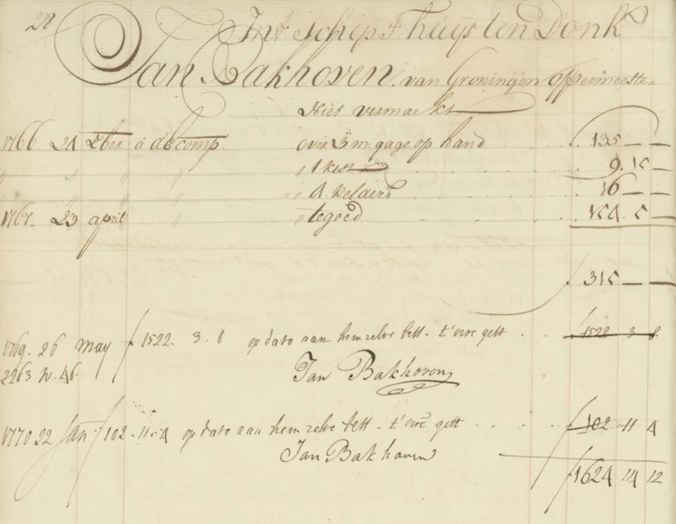 28 Int schip 't huys ten Donk
Jan Bakhoven van Groningen oppermeester
Niet vermaekt
1766 21 xber a d comp over 3 m gage op hand 135 — —
" " " " " 1 kist 9. 15 —
" " " " " A kelaers 16 — —
1767. 23 april " " tegoed 154. 5 —
f 315 — —
1769. 26 may f 1522. 3. 8 op dato aan hem zelve bett. t'over gett f 1522 3 8
2263 N. 46
Jan Bakhoven
1770 22 Jan f 102. 11. 4 op dato aan hem zelve bett. t'over gett f 102 11 4
Jan Bakhoven
f 1624 14 12